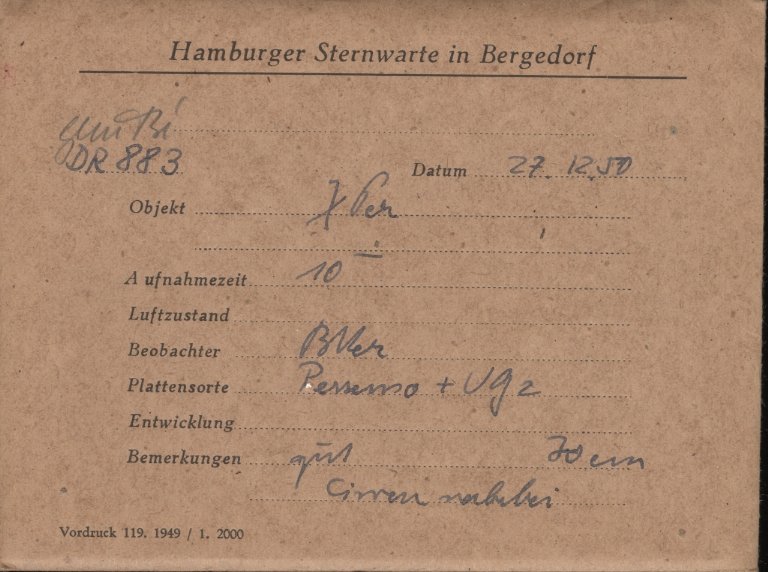 Hamburger Sternwarte in Bergedorf
DR 883
Datum 27.12.50
Objekt χ Per
Aufnahmezeit 10
Luftzustand
Beobachter
Plattensorte + UG2
Entwicklung
Bemerkungen gut
Cirren vorbei
Vordruck 119. 1949 / 1. 2000